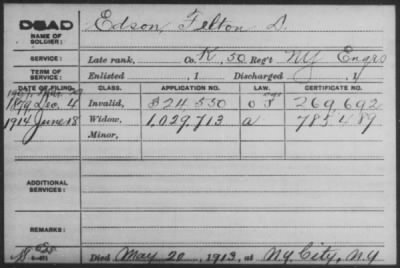 DEAD
NAME OF SOLDIER:
Edson, Felton D.
SERVICE:
Late rank, Co. K, 50 Reg't NY Engrs
TERM OF SERVICE:
Enlisted , 1 Discharged , 1
DATE OF FILING. CLASS. APPLICATION NO. LAW. CERTIFICATE NO.
1879 Dec. 4 Invalid, 324,550 269,692
1914 June 18 Widow, 1,029,713 a 783,489
Minor,
ADDITIONAL SERVICES:
REMARKS:
Died May 20, 1913, at NY City, NY